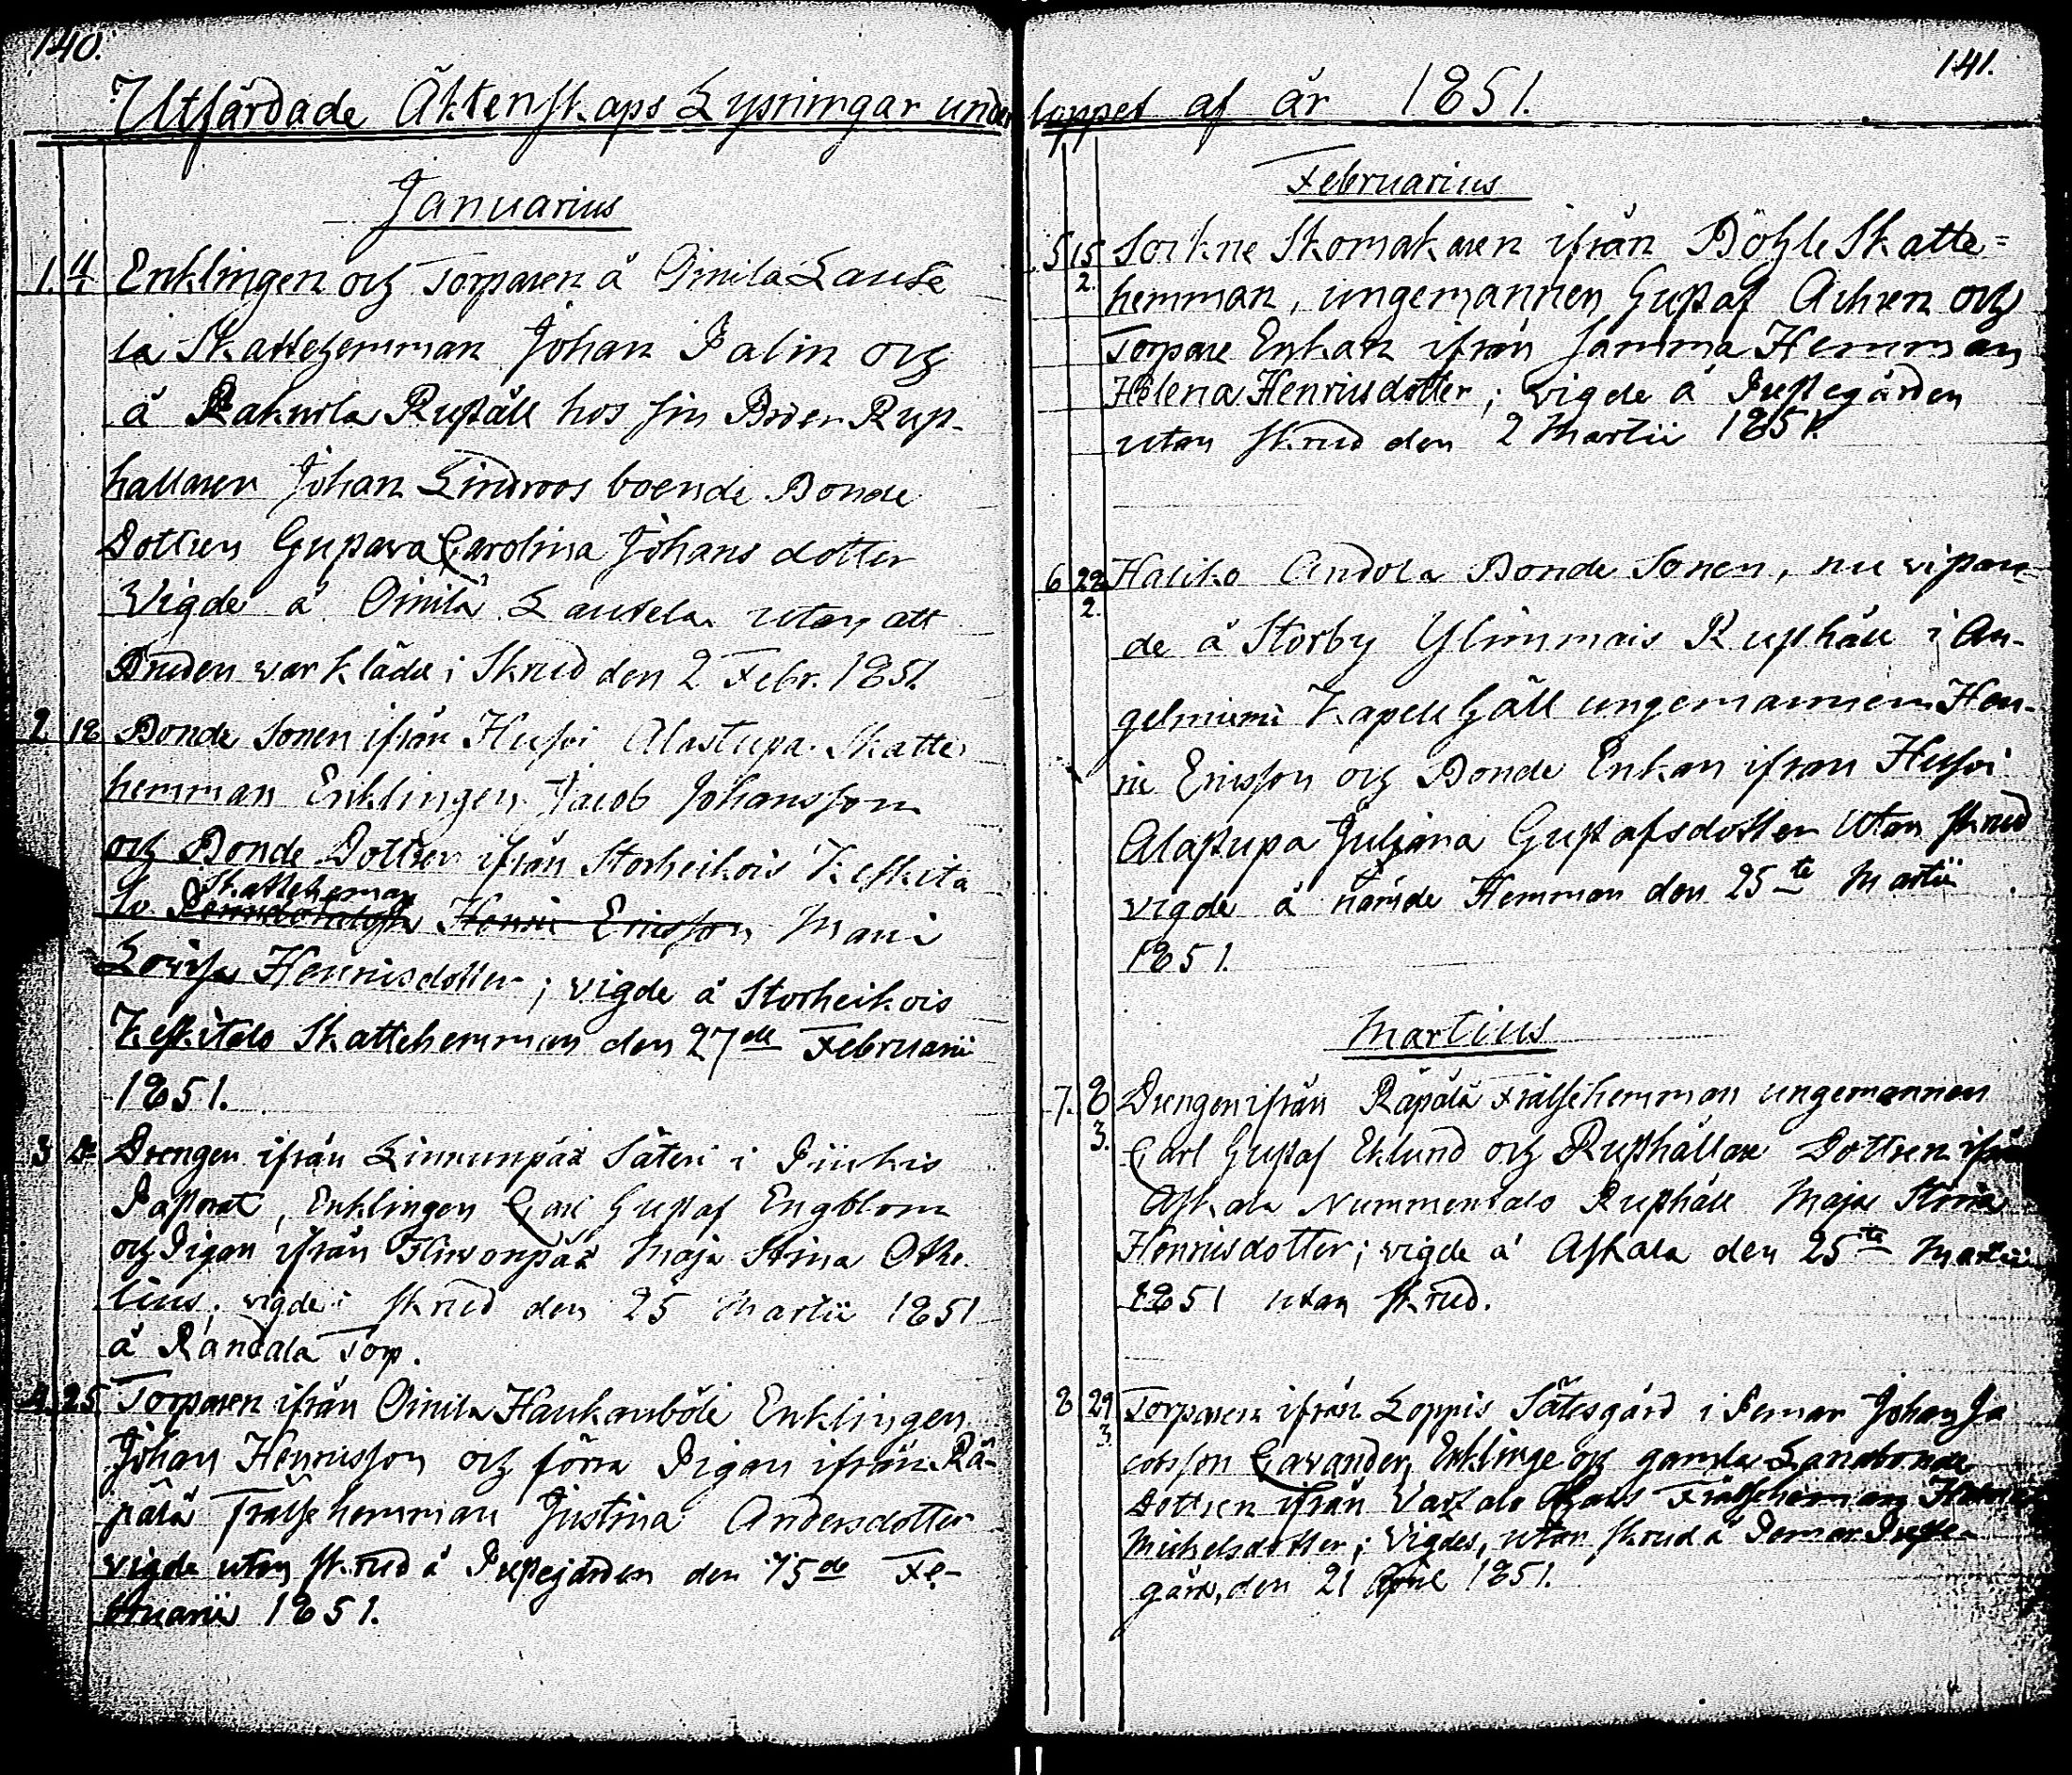 140.
Utfärdade Äktenskaps Lysningar under
Januarius
1. 4/1 Enklingen och Torparen å Oinila Lause
la Skattehemman Johan Palin och
å Rakuila Rusthåll hos sin Broder Rust-
hållaren Johan Lindroos boende Bonde
Dottren Gustava Carolina Johans dotter
Vigde å Oinila Lausela utan att
Bruden var klädd i Skrud den 2 Febr. 1851.
2 18 Bonde Sonen ifrån Huso Alastupa Skatte
hemman Enklingen Jacob Johansson
och Bonde Dottren ifrån Storheikois Keskita
lo Skattehemman Henric Ericsson Mari
Lovisa Henricsdotter; vigde å Storheikois
Keskitalo Skattehemman den 27de Februarii
1851.
3 Drengen ifrån Linnunpää Säteri i Piikis
Pastorat, Enklingen Carl Gustaf Engblom
och Pigan ifrån Hirvonpää Maja Stina Othe
lius, vigde i skrud den 25 Martii 1851
å Randala Torp.
4. 25 Torparen ifrån Oinila Haukanböle Enklingen
Johan Henricsson och förra Pigan ifrån Rä-
pälä Frälsehemman Justina Andersdotter
vigde utan skrud å Prestegården den 15de Fe-
bruarii 1851.
141.
loppet af år 1851.
Februarius
5 15/2. Sockne Skomakaren ifrån Böhle Skatte=
hemman, ungemannen Gustaf Achren och
Torpare Enkan ifrån samma Hemman
Helena Henricsdotter; vigde å Prestegården
utan skrud den 2 Martii 1851.
6 22/2. Haliko Andola Bonde Sonen, nu vistan-
de å Storby Ylimmais Rusthåll i An-
gelniemi Kapell Gäll ungemannen Hen-
ric Ericsson och Bonde Enkan ifrån Huso
Alastupa Juliana Gustafsdotter utan skrud
vigde å nämde Hemman den 25te Martii
1851.
Martius
7. 8/3. Drengen ifrån Räpälä Frälsehemman ungemannen
Carl Gustaf Eklund och Rusthållare Dottren ifrån
Askala Nummentalo Rusthåll Maja Stina
Henricsdotter; vigde å Askala den 25te Martii
1851 utan skrud.
8 29/3. Torparen ifrån Loppis Sätesgård i Pemar Johan Ja
cobsson Lavander, Enklinge och gamla Landbonde
Dottren ifrån Frälsehemman
Michelsdotter; Vigdes, utan skrud å Pemar Preste-
gård, den 21 April 1851.